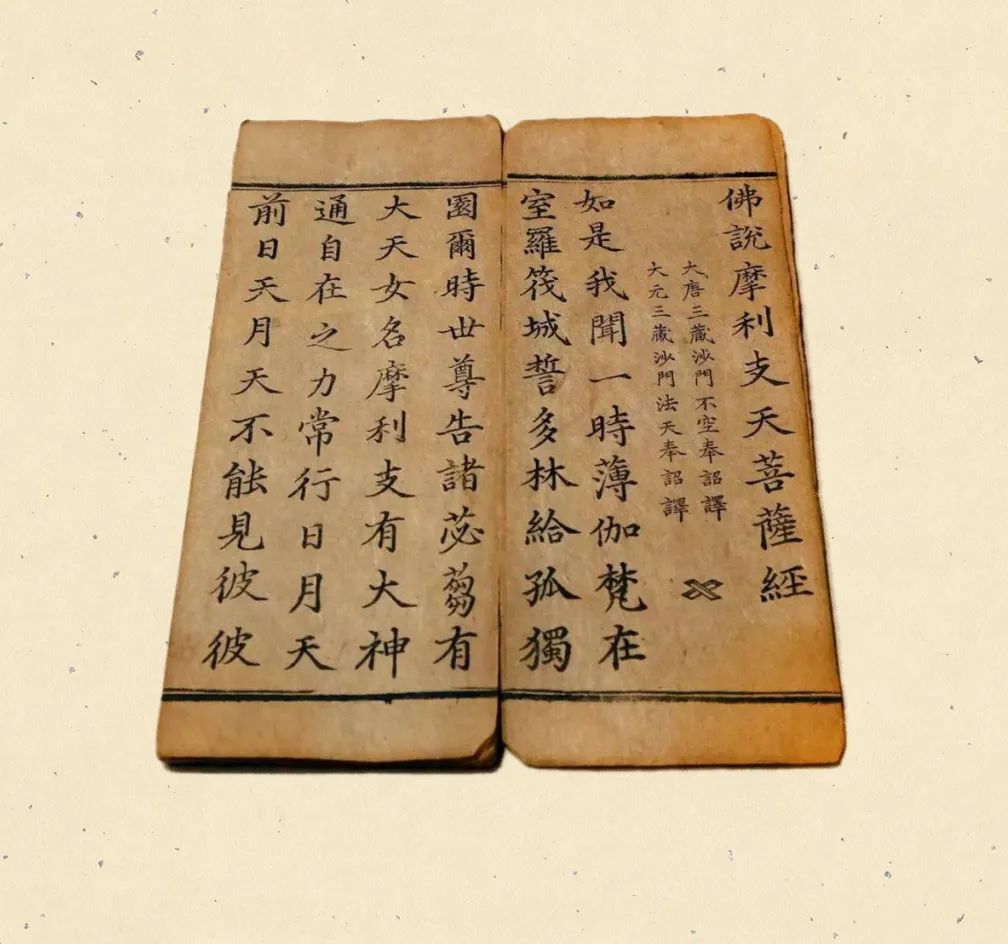 佛說摩利支天菩薩經
大唐三藏沙門不空奉詔譯
大元三藏沙門法天奉詔譯
如是我聞一時薄伽梵在
室羅筏城誓多林給孤獨
園爾時世尊告諸苾芻有
大天女名摩利支有大神
通自在之力常行日月天
前日天月天不能見彼彼